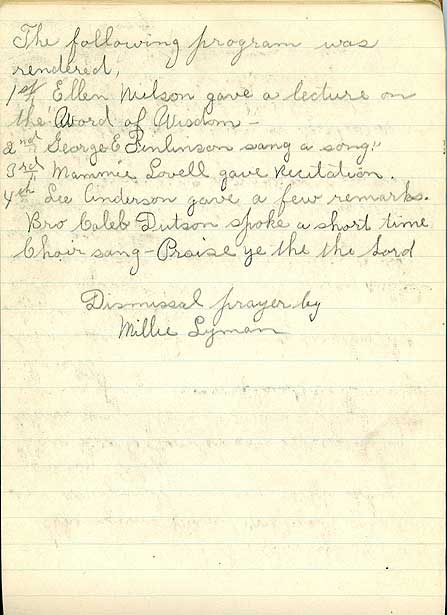 The following program was
rendered,
1st Ellen Nielson gave a lecture on
the "Word of Wisdom" -
2nd George E Finlinson sang a song"
3rd Mammie Lovell gave Recitation.
4th Lee Anderson gave a few remarks.
Bro Caleb Dutson spoke a short time
Choir sang - Praise ye the the Lord
Dismissal prayer by
Millie Lyman